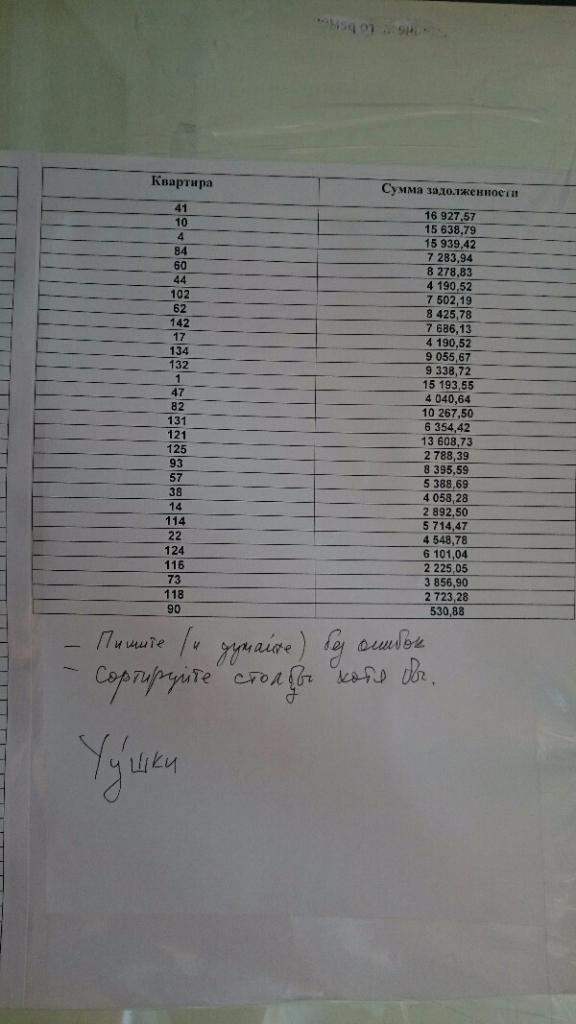 Квартира Сумма задолженности
41 16 927,57
10 15 638,79
4 15 939,42
84 7 283,94
60 8 278,83
44 4 190,52
102 7 502,19
62 8 425,78
142 7 686,13
17 4 190,52
134 9 055,67
132 9 338,72
1 15 193,55
47 4 040,64
82 10 267,50
131 6 354,42
121 13 608,73
125 2 788,39
93 8 395,59
57 5 388,69
38 4 058,28
14 2 892,50
114 5 714,47
22 4 548,78
124 6 101,04
116 2 225,05
73 3 856,90
118 2 723,28
90 530,88
– Пишите (и думайте) без ошибок
– Сортируйте столбцы хотя бы.
Уу́шки